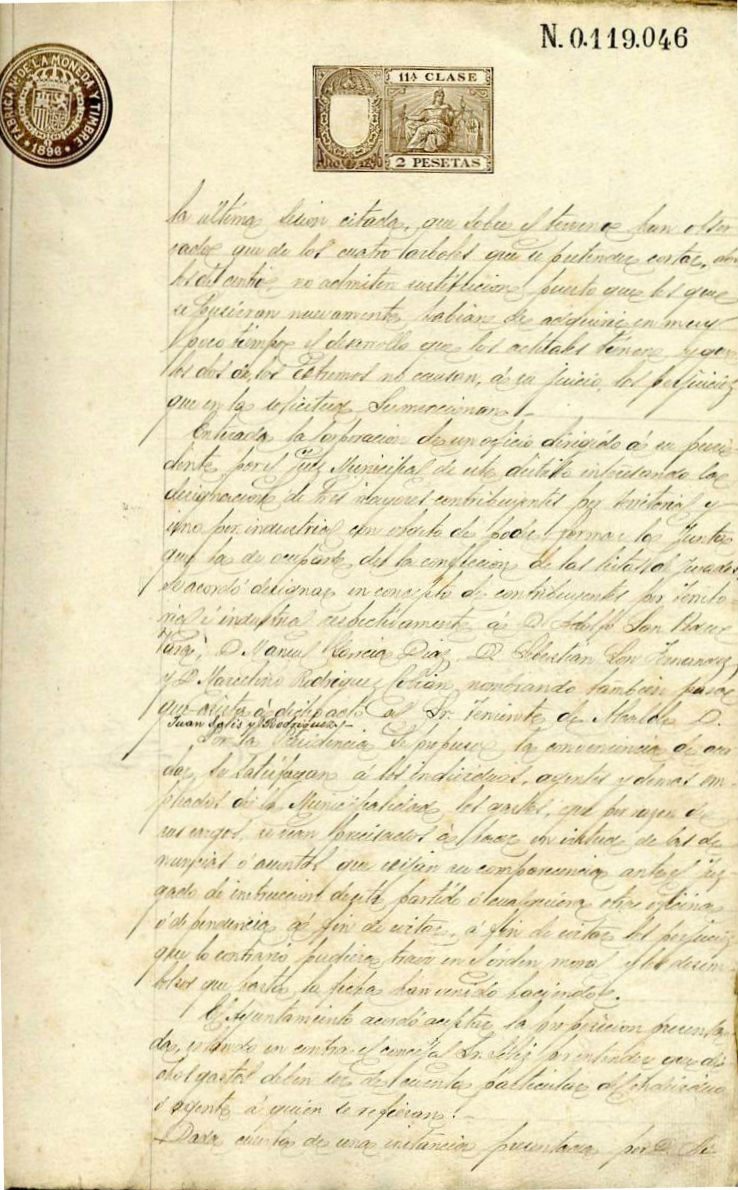 N. 0.119.046
FABRICA Nal. DE LA MONEDA Y TIMBRE
1896
11ª CLASE
AÑO 1896
2 PESETAS
la última sesion citada, que sobre el terreno han obser
vado que de los cuatro arboles que se pretende cortar, 
los del centro no admiten sustitucion puesto que los que
se pusieran nuevamente habian de adquirir en muy
poco tiempo el desarrollo que los actuales tienen, y que
los dos de los extremos no causan, á su juicio, los perjuicios
que en la solicitud se mencionan.
Enterada la Corporacion de un oficio dirigido á su presi
dente por el Juez Municipal de este distrito interesando la
designacion de tres mayores contribuyentes por territorial y
uno por industrial con objeto de poder formar la Junta
que ha de ocuparse de la confeccion de las listas de Jurados,
se acordó designar en concepto de contribuyentes por Territo-
rial é industrial respectivamente á D. Adolfo San
D. Manuel Garcia Diaz, D. Sebastián Fernandez,
y D. Marcelino Rodriguez nombrando tambien para
que asista á dicho acto al Sr. Teniente de Alcalde D.
Juan Solis y Rodriguez.-
Por la Presidencia se propuso la conveniencia de acor
dar, se satisfagan á los individuos, agentes y demas em-
pleados de la Municipalidad los gastos, que por razon de
sus cargos, se vean precisados á hacer en virtud de las de
nuncias ó asuntos que exijan su comparencia ante el Juz
gado de instruccion de este partido ó cualquiera otra oficina
ó dependencia á fin de evitar, á fin de evitar los perjuicios
que lo contrario pudiera traer en el orden moral y los desem-
bolsos que hasta la fecha han venido haciendo.
El Ayuntamiento acordó aceptar la proposicion presenta-
da, votando en contra el concejal Sr. por entender que di
chos gastos deben ser de cuenta particular del individuo
ó agente á quien se refieran.-
Dada cuenta de una instancia presentada por D.